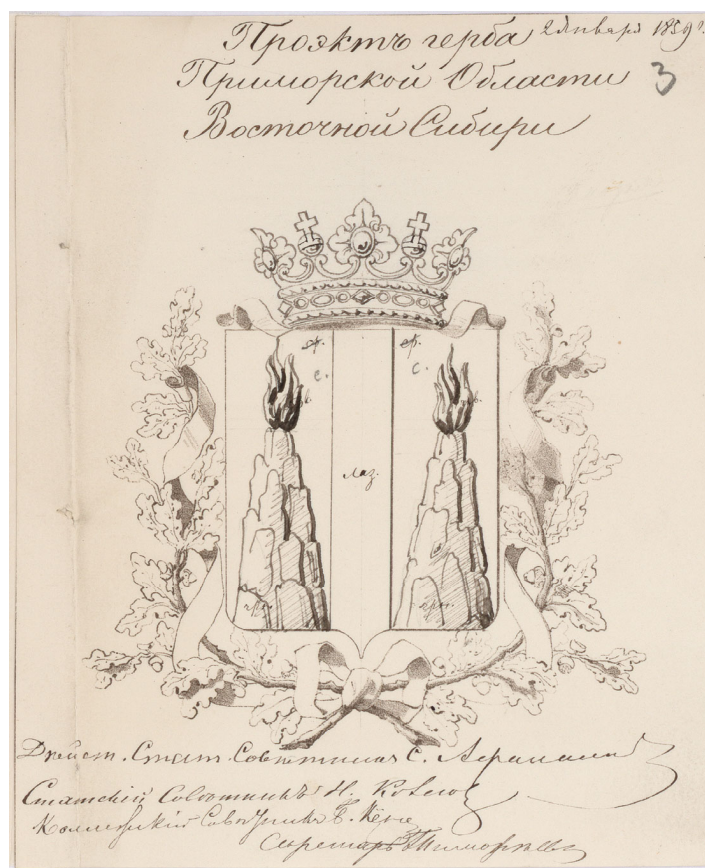 Проэктъ герба 2 Января 1859 г.
Приморской Области 3
Восточной Сибири
ср. ср.
с. с.
лаз.
Дѣйст. Стат. Совѣтникъ С.
Статскій Совѣтникъ Н.
Коллежскій Совѣтникъ Б. Кёне
Секретарь